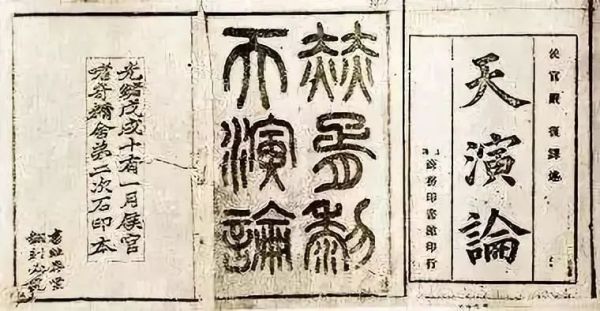 侯官嚴復譯述
天演論
商務印書館印行
赫胥黎
天演論
光緒戊戌十有一月侯官
嗜奇精舍第二次石印本
翻刻必究